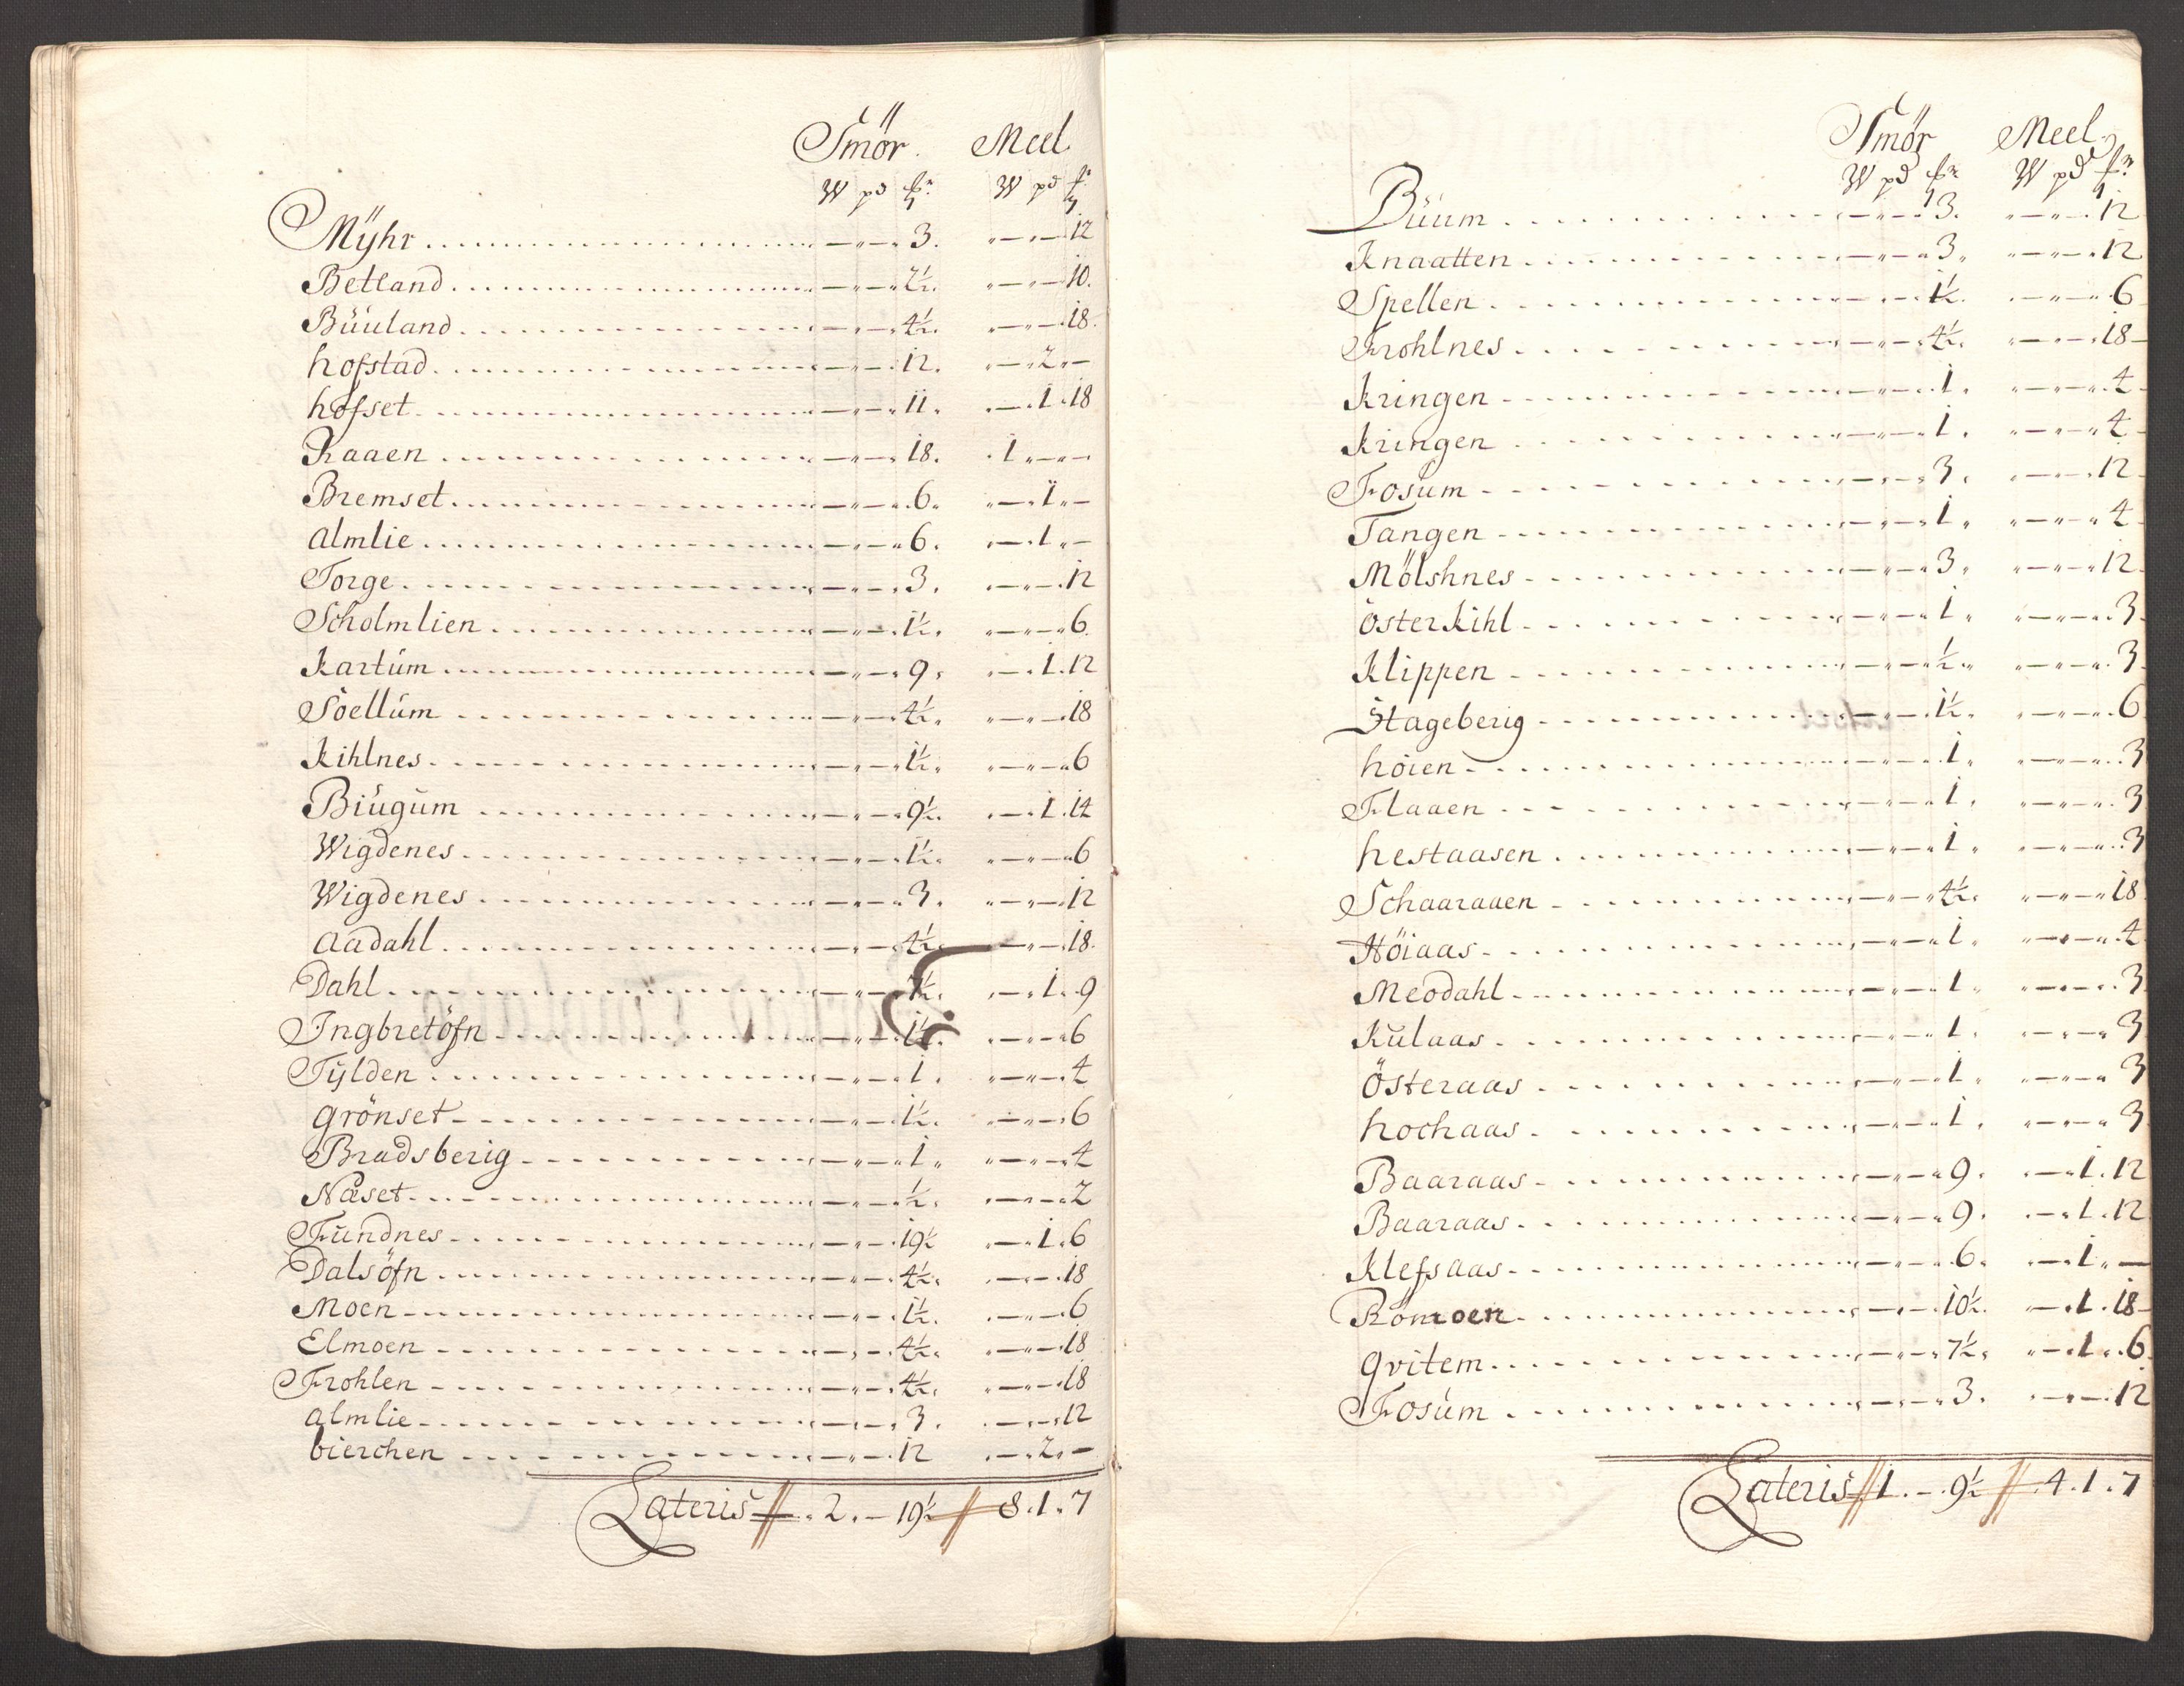 Smör. Meel
W pd W pd
Mÿhr 3. 12
Betland 2½. 10.
Büuland 4½. 18.
hofstad 12. 2 –
hofset 11. 1. 18
Raaen 18. 1
Bremset 6. 1 –
Almlie 6. 1 –
Torge 3. 12
Scholmlien 1½. 6
Kartum 9. 1. 12
Söellum 4½. 18
Kihlnes 1½. 6
Biugum 9½. 1. 14
Wigdenes 1½. 6
Wigdenes 3. 12
Aadahl 4½. 18.
Dahl 7½. 1. 9
Ingbretöfn 1½. 6
Tÿlden 1. 4
grönset 1½. 6
Bradsberig 1. 4
Næset ½. 2
Fundnes 19½ 1. 6
Dalsöfn 4½. 18
Moen 1½. 6
Elmoen 4½. 18
Frohlen 4½. 18
Almlie 3. 12
bierchen 12 2. –
Lateris 2. – 19½ 8. 1. 7
Smör Meel
W pd W pd
Büum 3. 12
Knaatten 3. 12
Spellen 1½. 6
Frohlnes 4½. 18
Kringen 1. 4
Kringen 1. 4
Fosum 3. 12
Tangen 1. 4
Mölshnes 3. 12
österkihl 1. 3
Klippen ½. 3
Stageberig 1½. 6
höien 1. 3
Flaaen 1. 3
hestaasen 1. 3
Schaaraaen 4½. 18
Höiaas 1. 4
Meodahl 1. 3
Kulaas 1. 3
Österaas 1. 3
hochaas 1. 3
Baaraas 9. 1. 12
Baaraas 9. 1. 12
Klefsaas 6. 1. –
Römoen 10½. 1. 18
qvitem 7½. 1. 6
Fosum 3. 12
Lateris 1. – 9½ 4. 1. 7